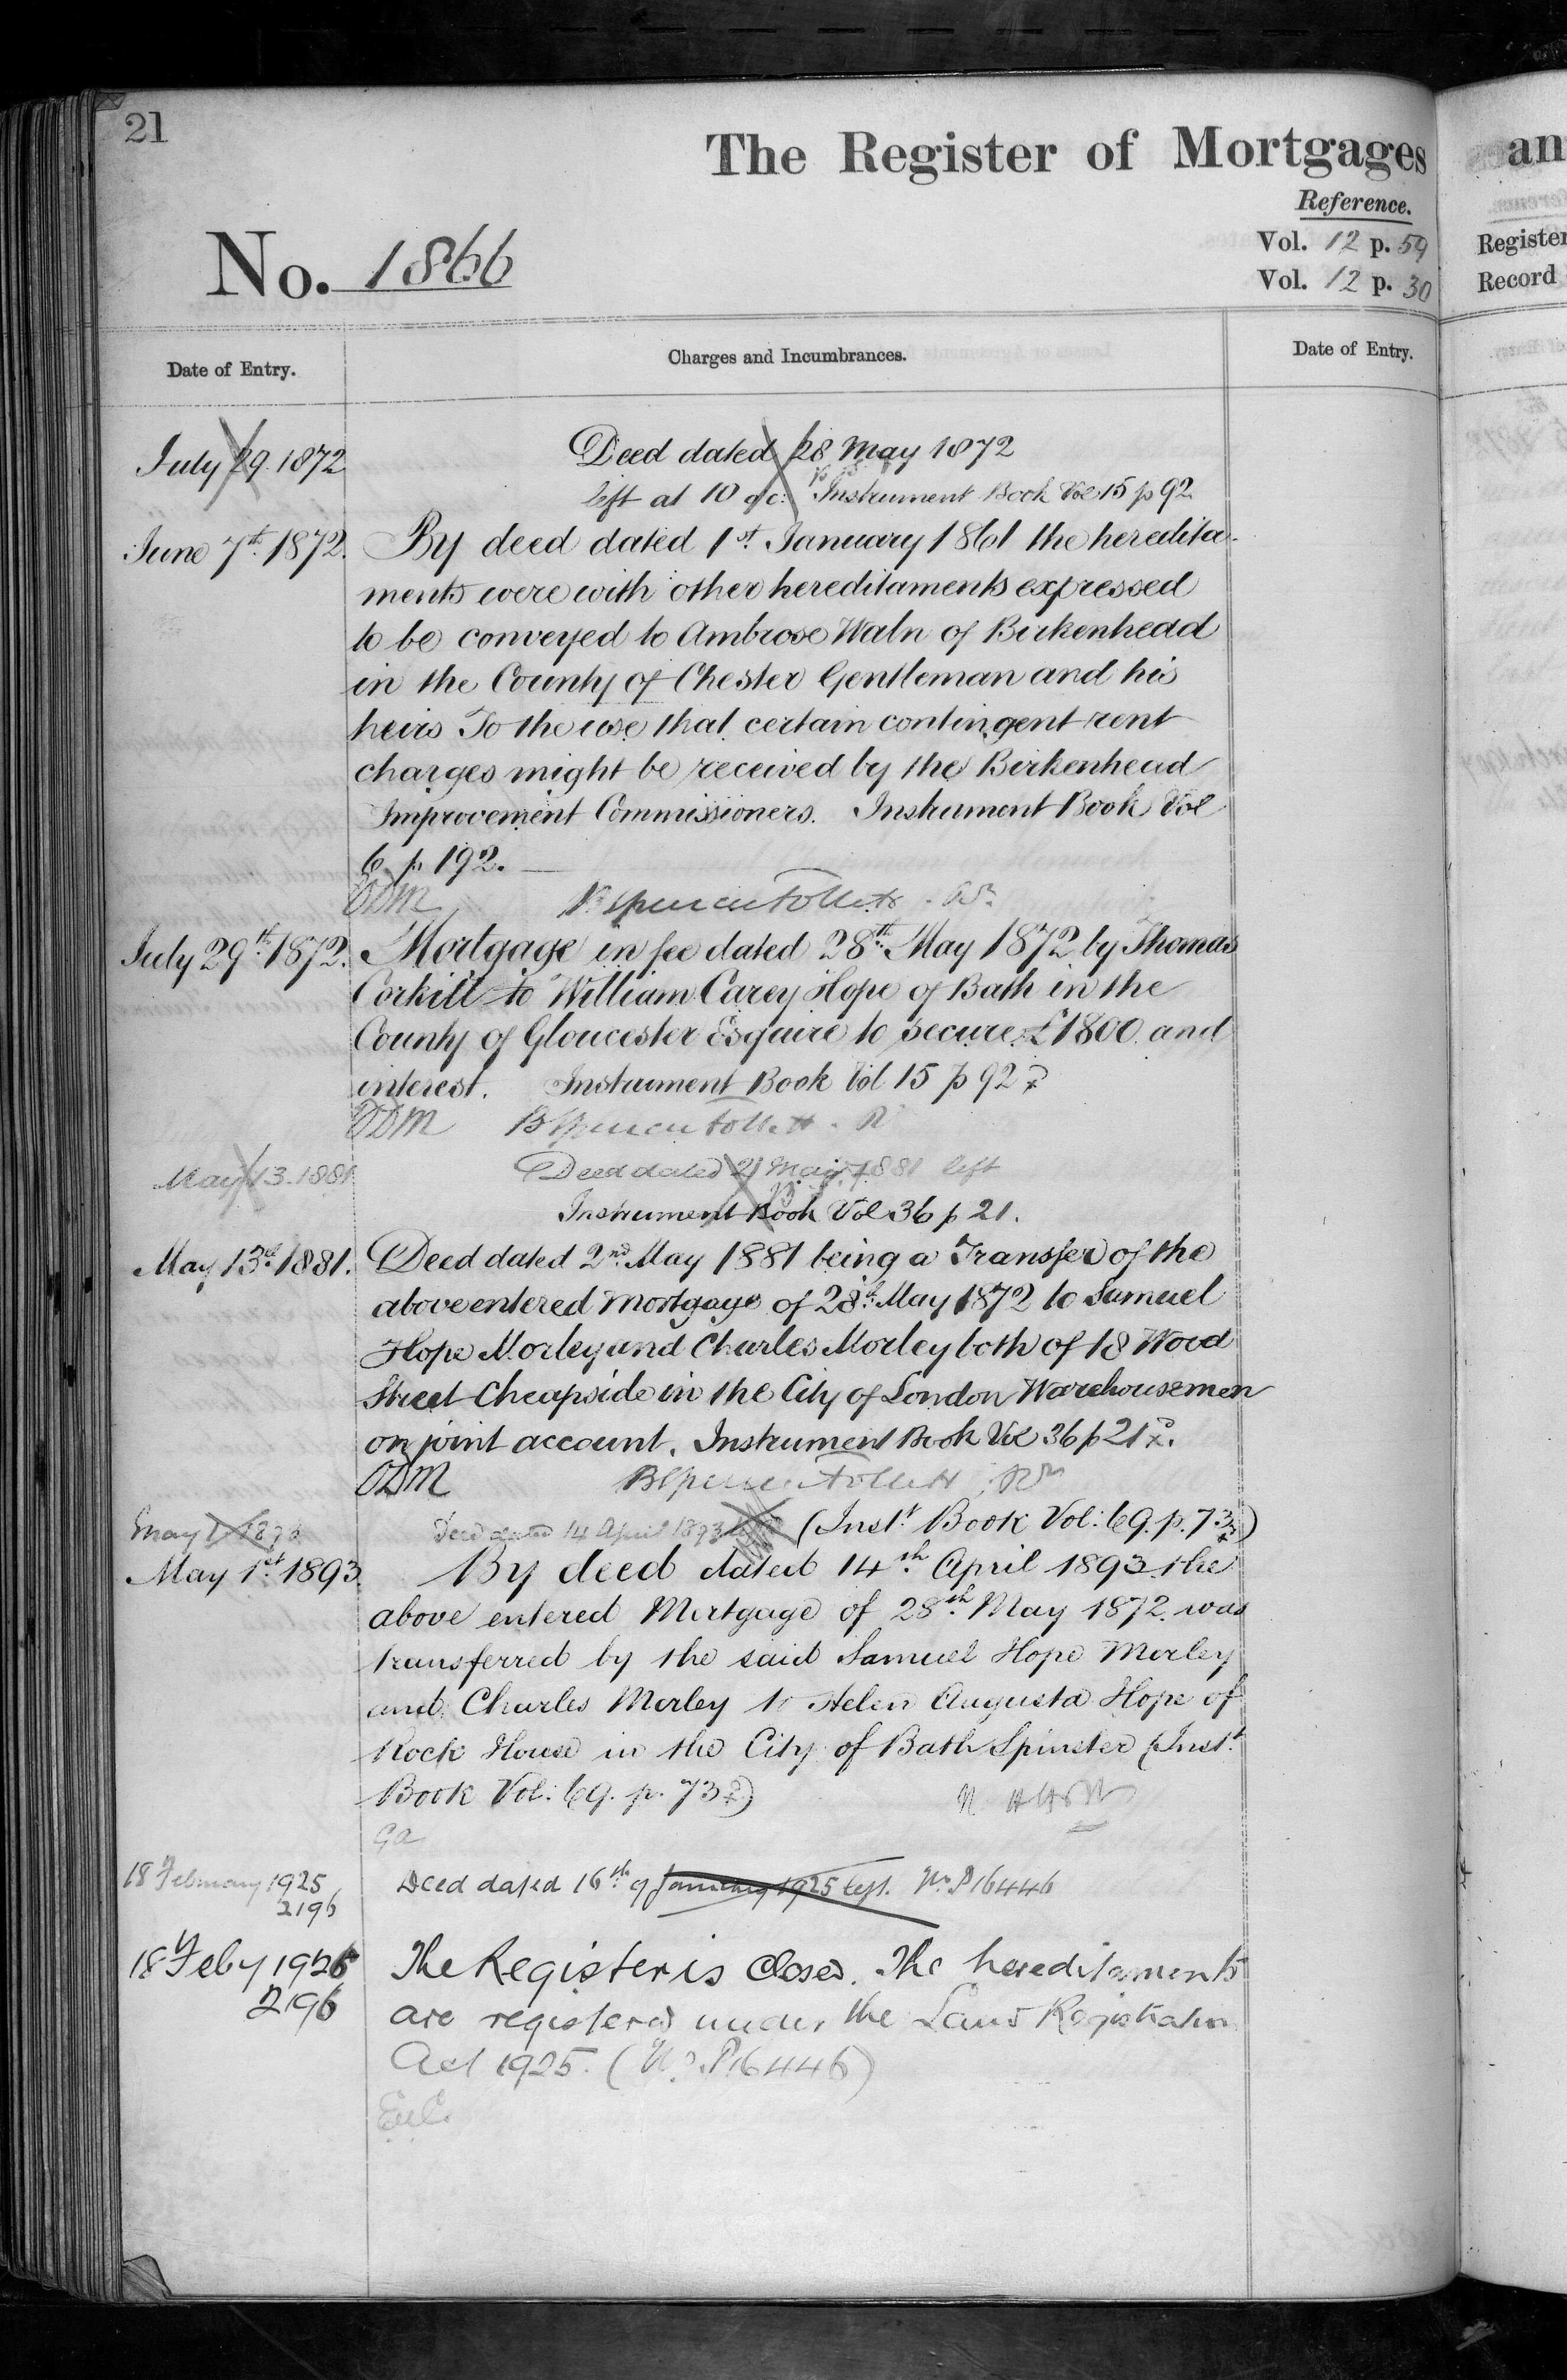 21
The Register of Mortgages
Reference.
No. 1866
Vol. 12 p. 59
Vol. 12 p. 30
Date of Entry.
Charges and Incumbrances.
Date of Entry.
July 29. 1872
Deed dated 28 May 1872
left at 10 o/c: Instrument Book Vol 15 p 92
June 7th. 1872.
By deed dated 1st. January 1861 the heredita-
ments were with other hereditaments expressed
to be conveyed to Ambrose Waln of Birkenhead
in the County of Chester Gentleman and his
heirs To the use that certain contingent rent
charges might be received by the Birkenhead
Improvement Commissioners. Instrument Book Vol
6 p 192.
ODM
B Spencer Follett
July 29th. 1872.
Mortgage in fee dated 28th. May 1872 by Thomas
Corkill to William Carey Hope of Bath in the
County of Gloucester Esquire to secure £1800 and
interest. Instrument Book Vol 15 p 92
ODM
B Spencer Follett. R
May 13. 1881
Deed dated 2 May 1881 left
Instrument Book Vol 36 p 21.
May 13th. 1881.
Deed dated 2nd. May 1881 being a Transfer of the
above entered Mortgage of 28th. May 1872 to Samuel
Hope Morley and Charles Morley both of 18 Wood
Street Cheapside in the City of London Warehousemen
on joint account. Instrument Book Vol 36 p 21
ODM
B Spencer Follett
May 1
Deed dated 14 April 1893
(Inst. Book Vol: 69. p. 73)
May 1st. 1893.
By deed dated 14th. April 1893 the
above entered Mortgage of 28th. May 1872. was
transferred by the said Samuel Hope Morley
and Charles Morley to Helen Augusta Hope of
Rock House in the City of Bath Spinster (Inst.
Book Vol: 69. p. 73)
18 February 1925
2196
Deed dated 16th. of January 1925 left. No. P16446
18 Feby 1926
2196
The Register is closed. The hereditaments
are registered under the Land Registration
Act 1925. (No. P16446)
an
Register
Record